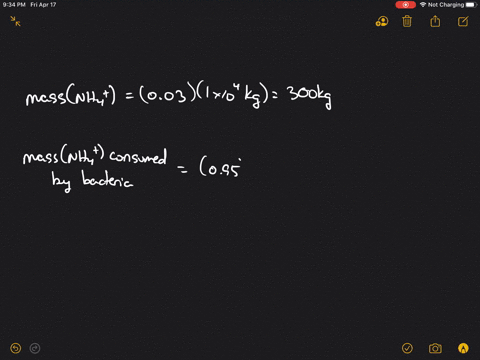 9:34 PM Fri Apr 17
Not Charging
mass(NH₄⁺) = (0.03)(1×10⁴ kg) = 300kg
mass(NH₄⁺) consumed
by bacteria = (0.95